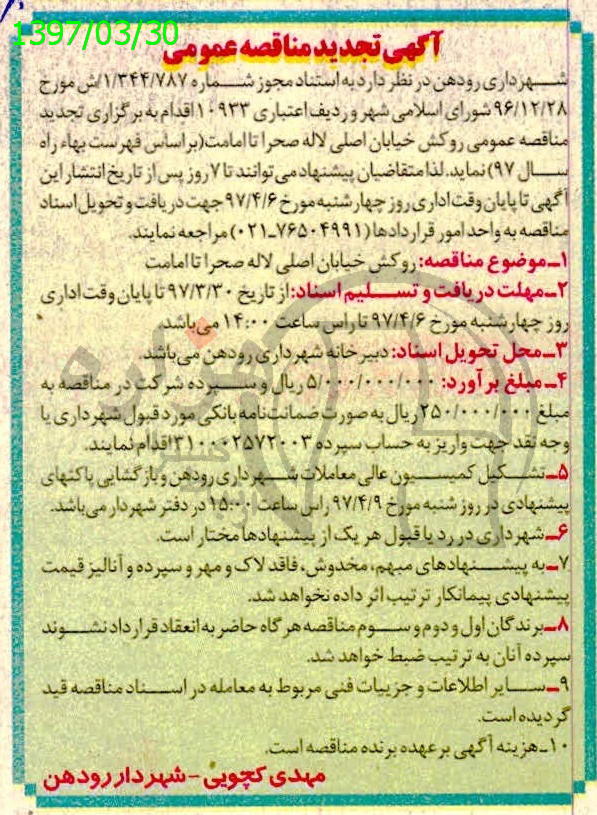 1397/03/30
آگهی تجدید مناقصه عمومی
شهرداری رودهن در نظر دارد به استناد مجوز شماره ۱/۳۴۴/۷۸۷/ش مورخ
۹۶/۱۲/۲۸ شورای اسلامی شهر و ردیف اعتباری ۱۰۹۳۳ اقدام به برگزاری تجدید
مناقصه عمومی روکش خیابان اصلی لاله صحرا تا امامت (براساس فهرست بهاء راه
سال ۹۷) نماید. لذا متقاضیان پیشنهاد می‌توانند تا ۷ روز پس از تاریخ انتشار این
آگهی تا پایان وقت اداری روز چهارشنبه مورخ ۹۷/۴/۶ جهت دریافت و تحویل اسناد
مناقصه به واحد امور قراردادها (۷۶۵۰۴۹۹۱-۰۲۱) مراجعه نمایند.
۱-موضوع مناقصه: روکش خیابان اصلی لاله صحرا تا امامت
۲-مهلت دریافت و تسلیم اسناد: از تاریخ ۹۷/۳/۳۰ تا پایان وقت اداری
روز چهارشنبه مورخ ۹۷/۴/۶ تا راس ساعت ۱۴:۰۰ می‌باشد.
۳-محل تحویل اسناد: دبیرخانه شهرداری رودهن می‌باشد.
۴-مبلغ برآورد: ۵/۰۰۰/۰۰۰/۰۰۰ ریال و سپرده شرکت در مناقصه به
مبلغ ۲۵۰/۰۰۰/۰۰۰ ریال به صورت ضمانت‌نامه بانکی مورد قبول شهرداری یا
وجه نقد جهت واریز به حساب سپرده ۳۱۰۰۰۲۵۷۲۰۰۳ اقدام نمایند.
۵-تشکیل کمیسیون عالی معاملات شهرداری رودهن و بازگشایی پاکتهای
پیشنهادی در روز شنبه مورخ ۹۷/۴/۹ راس ساعت ۱۵:۰۰ در دفتر شهردار می‌باشد.
۶-شهرداری در رد یا قبول هر یک از پیشنهادها مختار است.
۷-به پیشنهادهای مبهم، مخدوش، فاقد لاک و مهر و سپرده و آنالیز قیمت
پیشنهادی پیمانکار ترتیب اثر داده نخواهد شد.
۸-برندگان اول و دوم و سوم مناقصه هرگاه حاضر به انعقاد قرارداد نشوند
سپرده آنان به ترتیب ضبط خواهد شد.
۹-سایر اطلاعات و جزییات فنی مربوط به معامله در اسناد مناقصه قید
گردیده است.
۱۰-هزینه آگهی برعهده برنده مناقصه است.
مهدی کچویی-شهردار رودهن